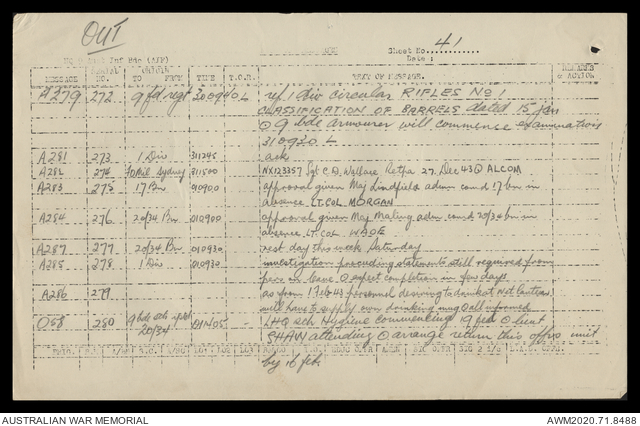 OUT
Sheet No. 41
Date:
Inf Bde (AIF)
MESSAGE NO. TO FROM TIME T.O.R. TEXT OF MESSAGE. REMARKS & ACTION.
A279 272 9 fd regt 300940L ref 1 Div circular RIFLES No 1
CLASSIFICATION OF BARRELS dated 15 jan
9 bde armourer will commence examination
310930 L
A281 273 1 Div 311245 ack
274 Sydney 311500 NX123357 Sgt C.D. Wallace 27 Dec 43 ALCOM
A283 275 17 Bn 010900 approval given Maj Lindfield adm comd 17 bn in
absence LT. COL. MORGAN
A284 276 20/34 Bn 010900 approval given Maj Maling adm comd 20/34 bn in
absence LT. COL.
A287 277 20/34 Bn 010930 rest day this week Saturday
A285 278 1 Div 010930 investigation proceeding statements still required from
pers on leave expect completion in few days
A286 279 as from 17 43 personnel desiring to drink at
will have to own drinking mug all informed
O58 280 9 bde
20/34 LHQ sch Hygiene commencing 19 feb lieut
SHAW attending arrange return this offr unit
by 16 feb.
AUSTRALIAN WAR MEMORIAL
AWM2020.71.8488